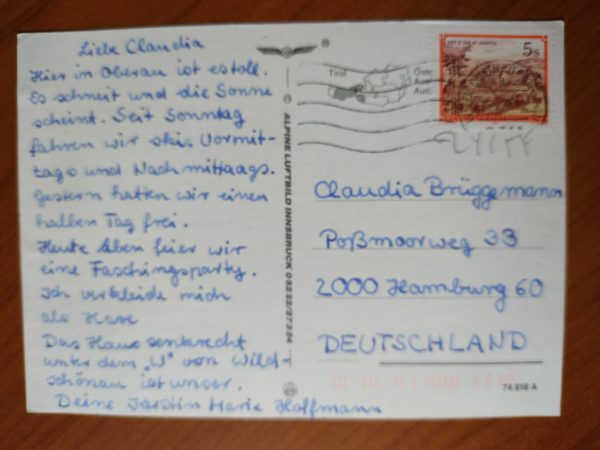 Liebe Claudia
Hier in Oberau ist es toll.
Es schneit und die Sonne
scheint. Seit Sonntag
fahren wir ski. Vormit-
tags und Nachmittaags.
Gestern hatten wir einen
halben Tag frei.
Heute Aben feier wir
eine Faschingsparty.
Ich verkleide mich
als Hase
Das Haus senkrecht
unter dem „W" von Wild-
schönau ist unser.
Deine Kerstin Marie Hoffmann
®
© ALPINE LUFTBILD INNSBRUCK 05222/27324
Tirol
5s
Claudia Brüggemann
Poßmoorweg 33
2000 Hamburg 60
DEUTSCHLAND
74 818 A